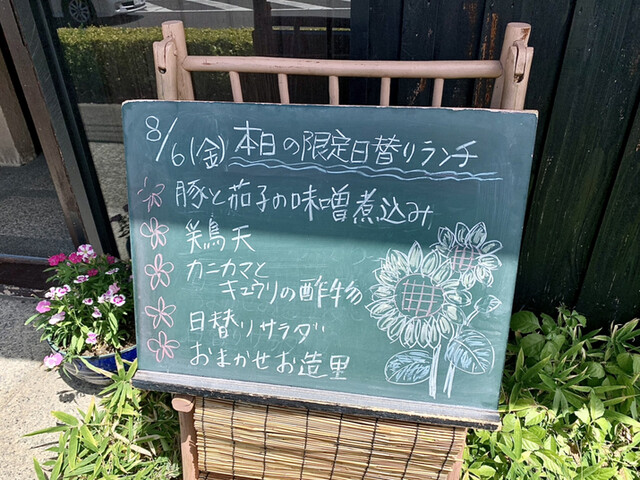 8/6(金) 本日の限定日替りランチ
豚と茄子の味噌煮込み
鶏天
カニカマと
キュウリの酢物
日替りサラダ
おまかせお造里